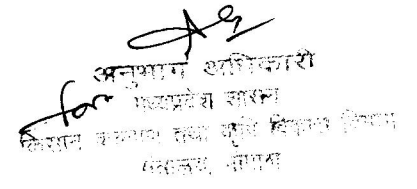 अनुभाग अधिकारी
for मध्यप्रदेश शासन
किसान कल्याण तथा कृषि विकास विभाग
मंत्रालय, भोपाल